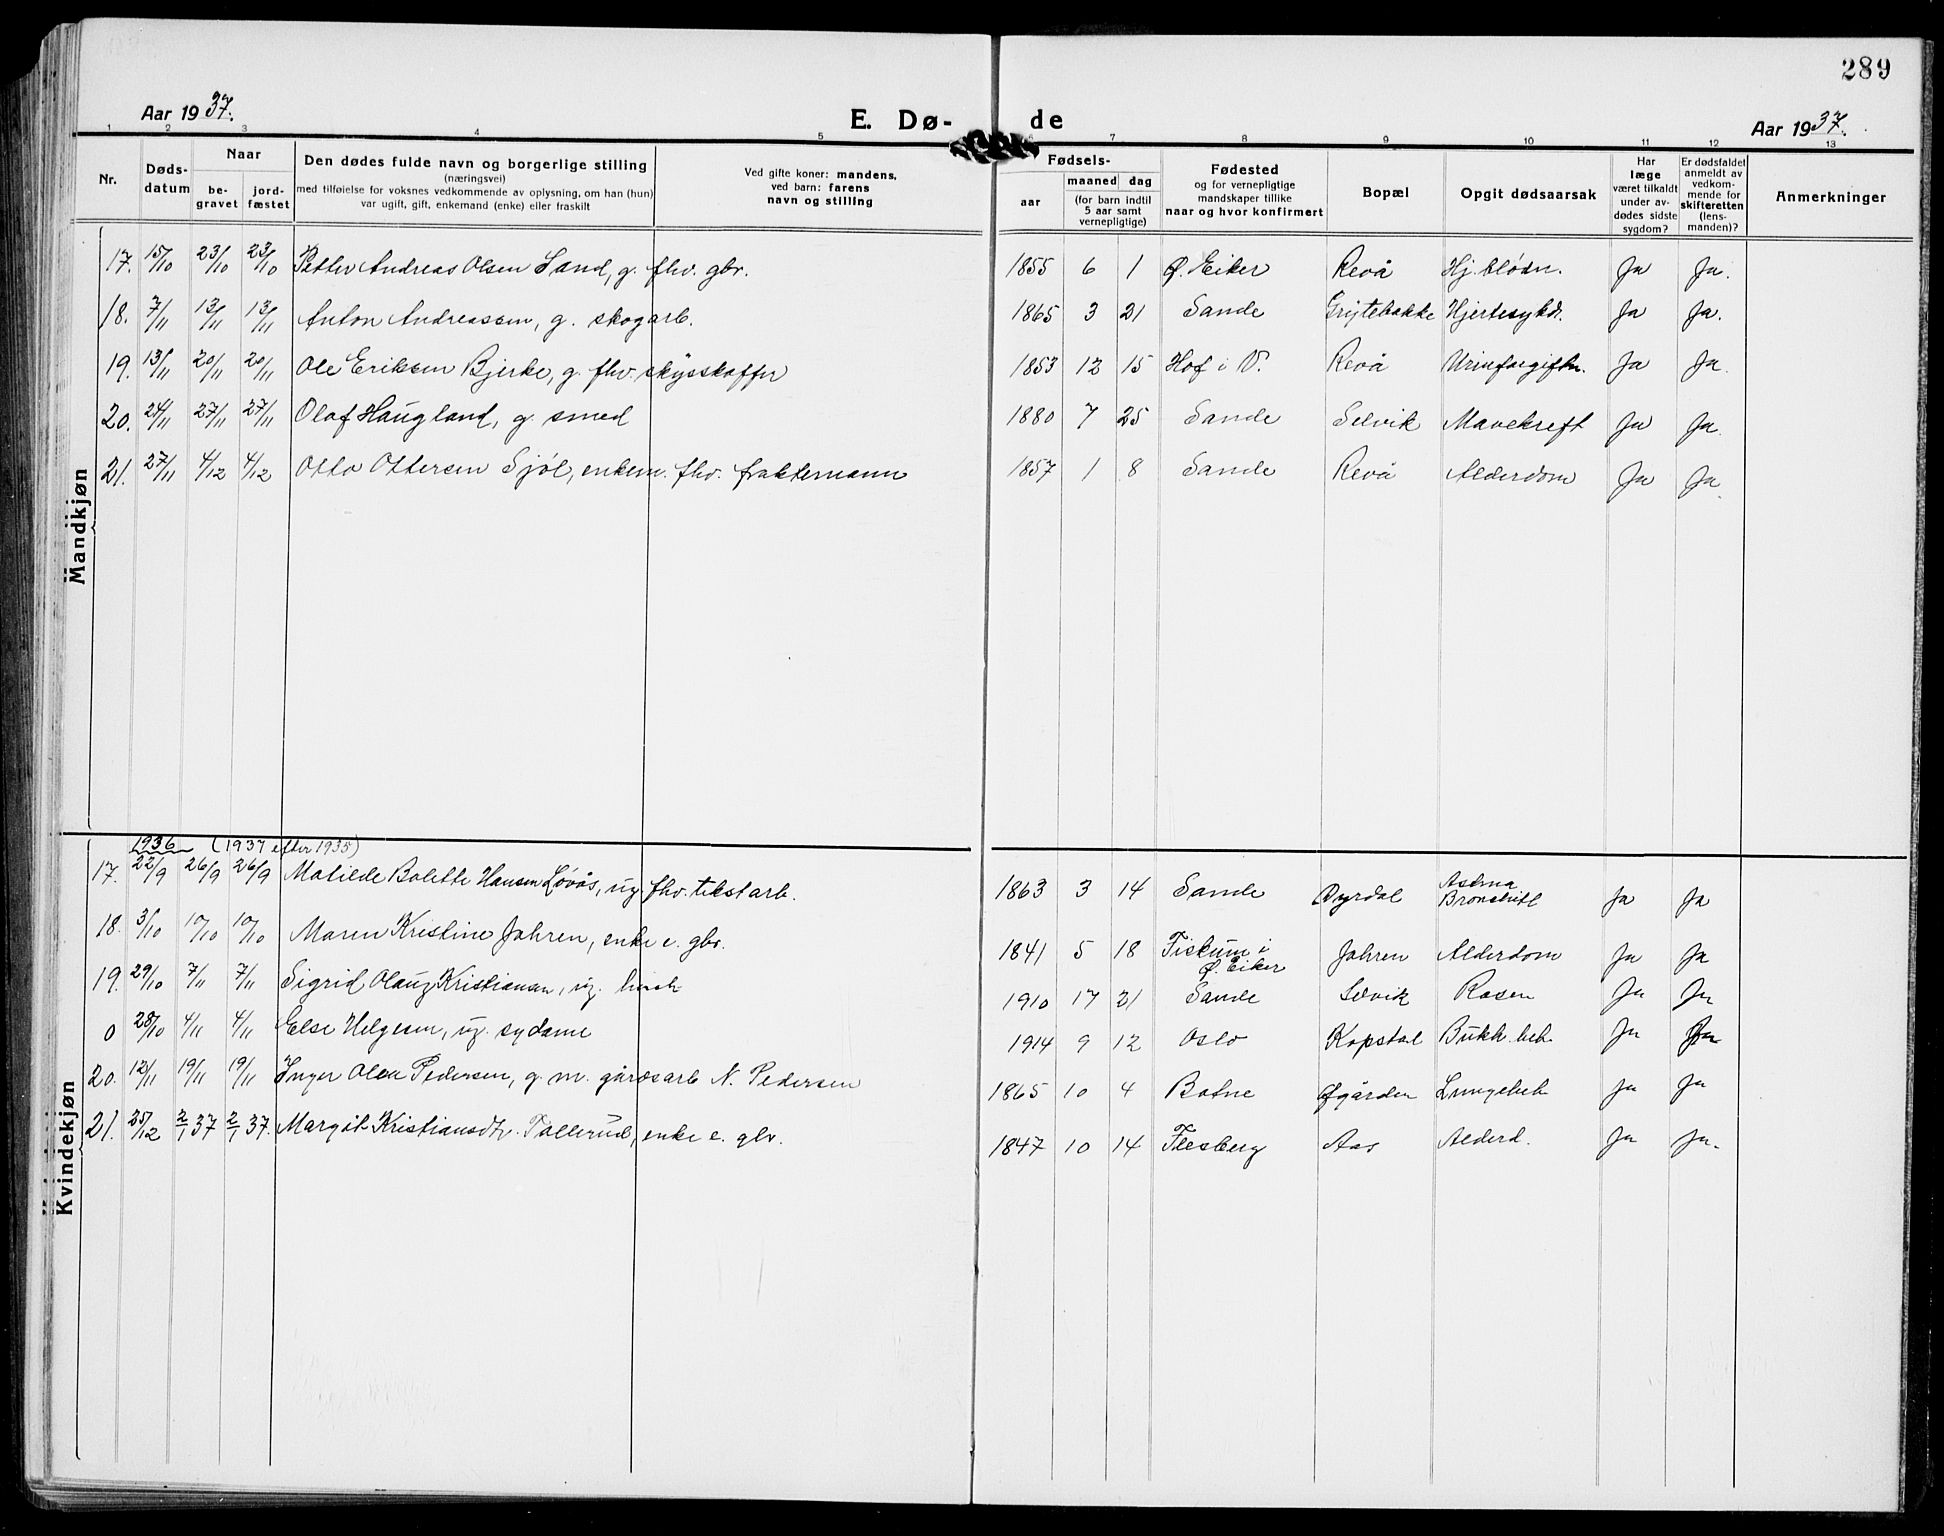 289
Aar 1937.
E. Dø- de
Aar 1937.
1 2 3 4 5 6 7 8 9 10 11 12 13
Nr.
Døds-
datum
Naar
be-
gravet
jord-
fæstet
Den dødes fulde navn og borgerlige stilling
(næringsvei)
med tilføielse for voksnes vedkommende av oplysning, om han (hun)
var ugift, gift, enkemand (enke) eller fraskilt
Ved gifte koner: mandens,
ved barn: farens
navn og stilling
Fødsels-
aar
maaned dag
(for barn indtil
5 aar samt
vernepligtige)
Fødested
og for vernepligtige
mandskaper tillike
naar og hvor konfirmert
Bopæl
Opgit dødsaarsak
Har
læge
været tilkaldt
under av-
dødes sidste
sygdom?
Er dødsfaldet
anmeldt av
vedkom-
mende for
skifteretten
(lens-
manden)?
Anmerkninger
Mandkjøn
17. 15/10 23/10 23/10 Petter Andreas Olsen Sand, g. fhv. gbr. 1855 6 1 Ø. Eiker Revå Hj. blødn. Ja Ja.
18. 7/11 13/11 13/11 Anton Andreassen, g. skogarb. 1865 3 21 Sande Grytebakke Hjertesykd. Ja Ja.
19. 13/11 20/11 20/11 Ole Eriksen Bjerke, g. fhv. skysskaffer 1853 12 15 Hof i V. Revå Urinforgiftn. Ja Ja.
20. 24/11 27/11 27/11 Olaf Haugland, g. smed 1880 7 25 Sande Selvik Mavekreft Ja Ja.
21. 27/11 4/12 4/12 Otto Ottersen Sjøl, enkem. fhv. fraktemann 1857 1 8 Sande Revå Alderdom Ja Ja.
Kvindekjøn
1936 (1937 efter 1935)
17. 22/9 26/9 26/9 Matilde Bolette Hansen Løvås, ug. fhv. tekstarb. 1863 3 14 Sande Dyrdal Astma
Bronchitt Ja Ja
18. 3/10 10/10 10/10 Maren Kristine Jahren, enke e. gbr. 1841 5 18 Fiskum i
Ø. Eiker Jahren Alderdom Ja Ja
19. 29/10 7/11 7/11 Sigrid Olaug Kristiansen, ug. 1910 17 21 Sande Selvik Rosen Ja Ja
0 28/10 4/11 4/11 Else Helgesen, ug. sydame 1914 9 12 Oslo Kopstad Bukh. bet. Ja Ja
20. 12/11 19/11 19/11 Inger Olea Pedersen, g. m. gårdsarb N. Pedersen 1865 10 4 Botne Øgården Lungebet. Ja Ja
21. 25/12 2/1 37 2/1 37. Margit Kristiansdtr. Tollerud, enke e. gbr. 1847 10 14 Flesberg Aas Alderd. Ja Ja.